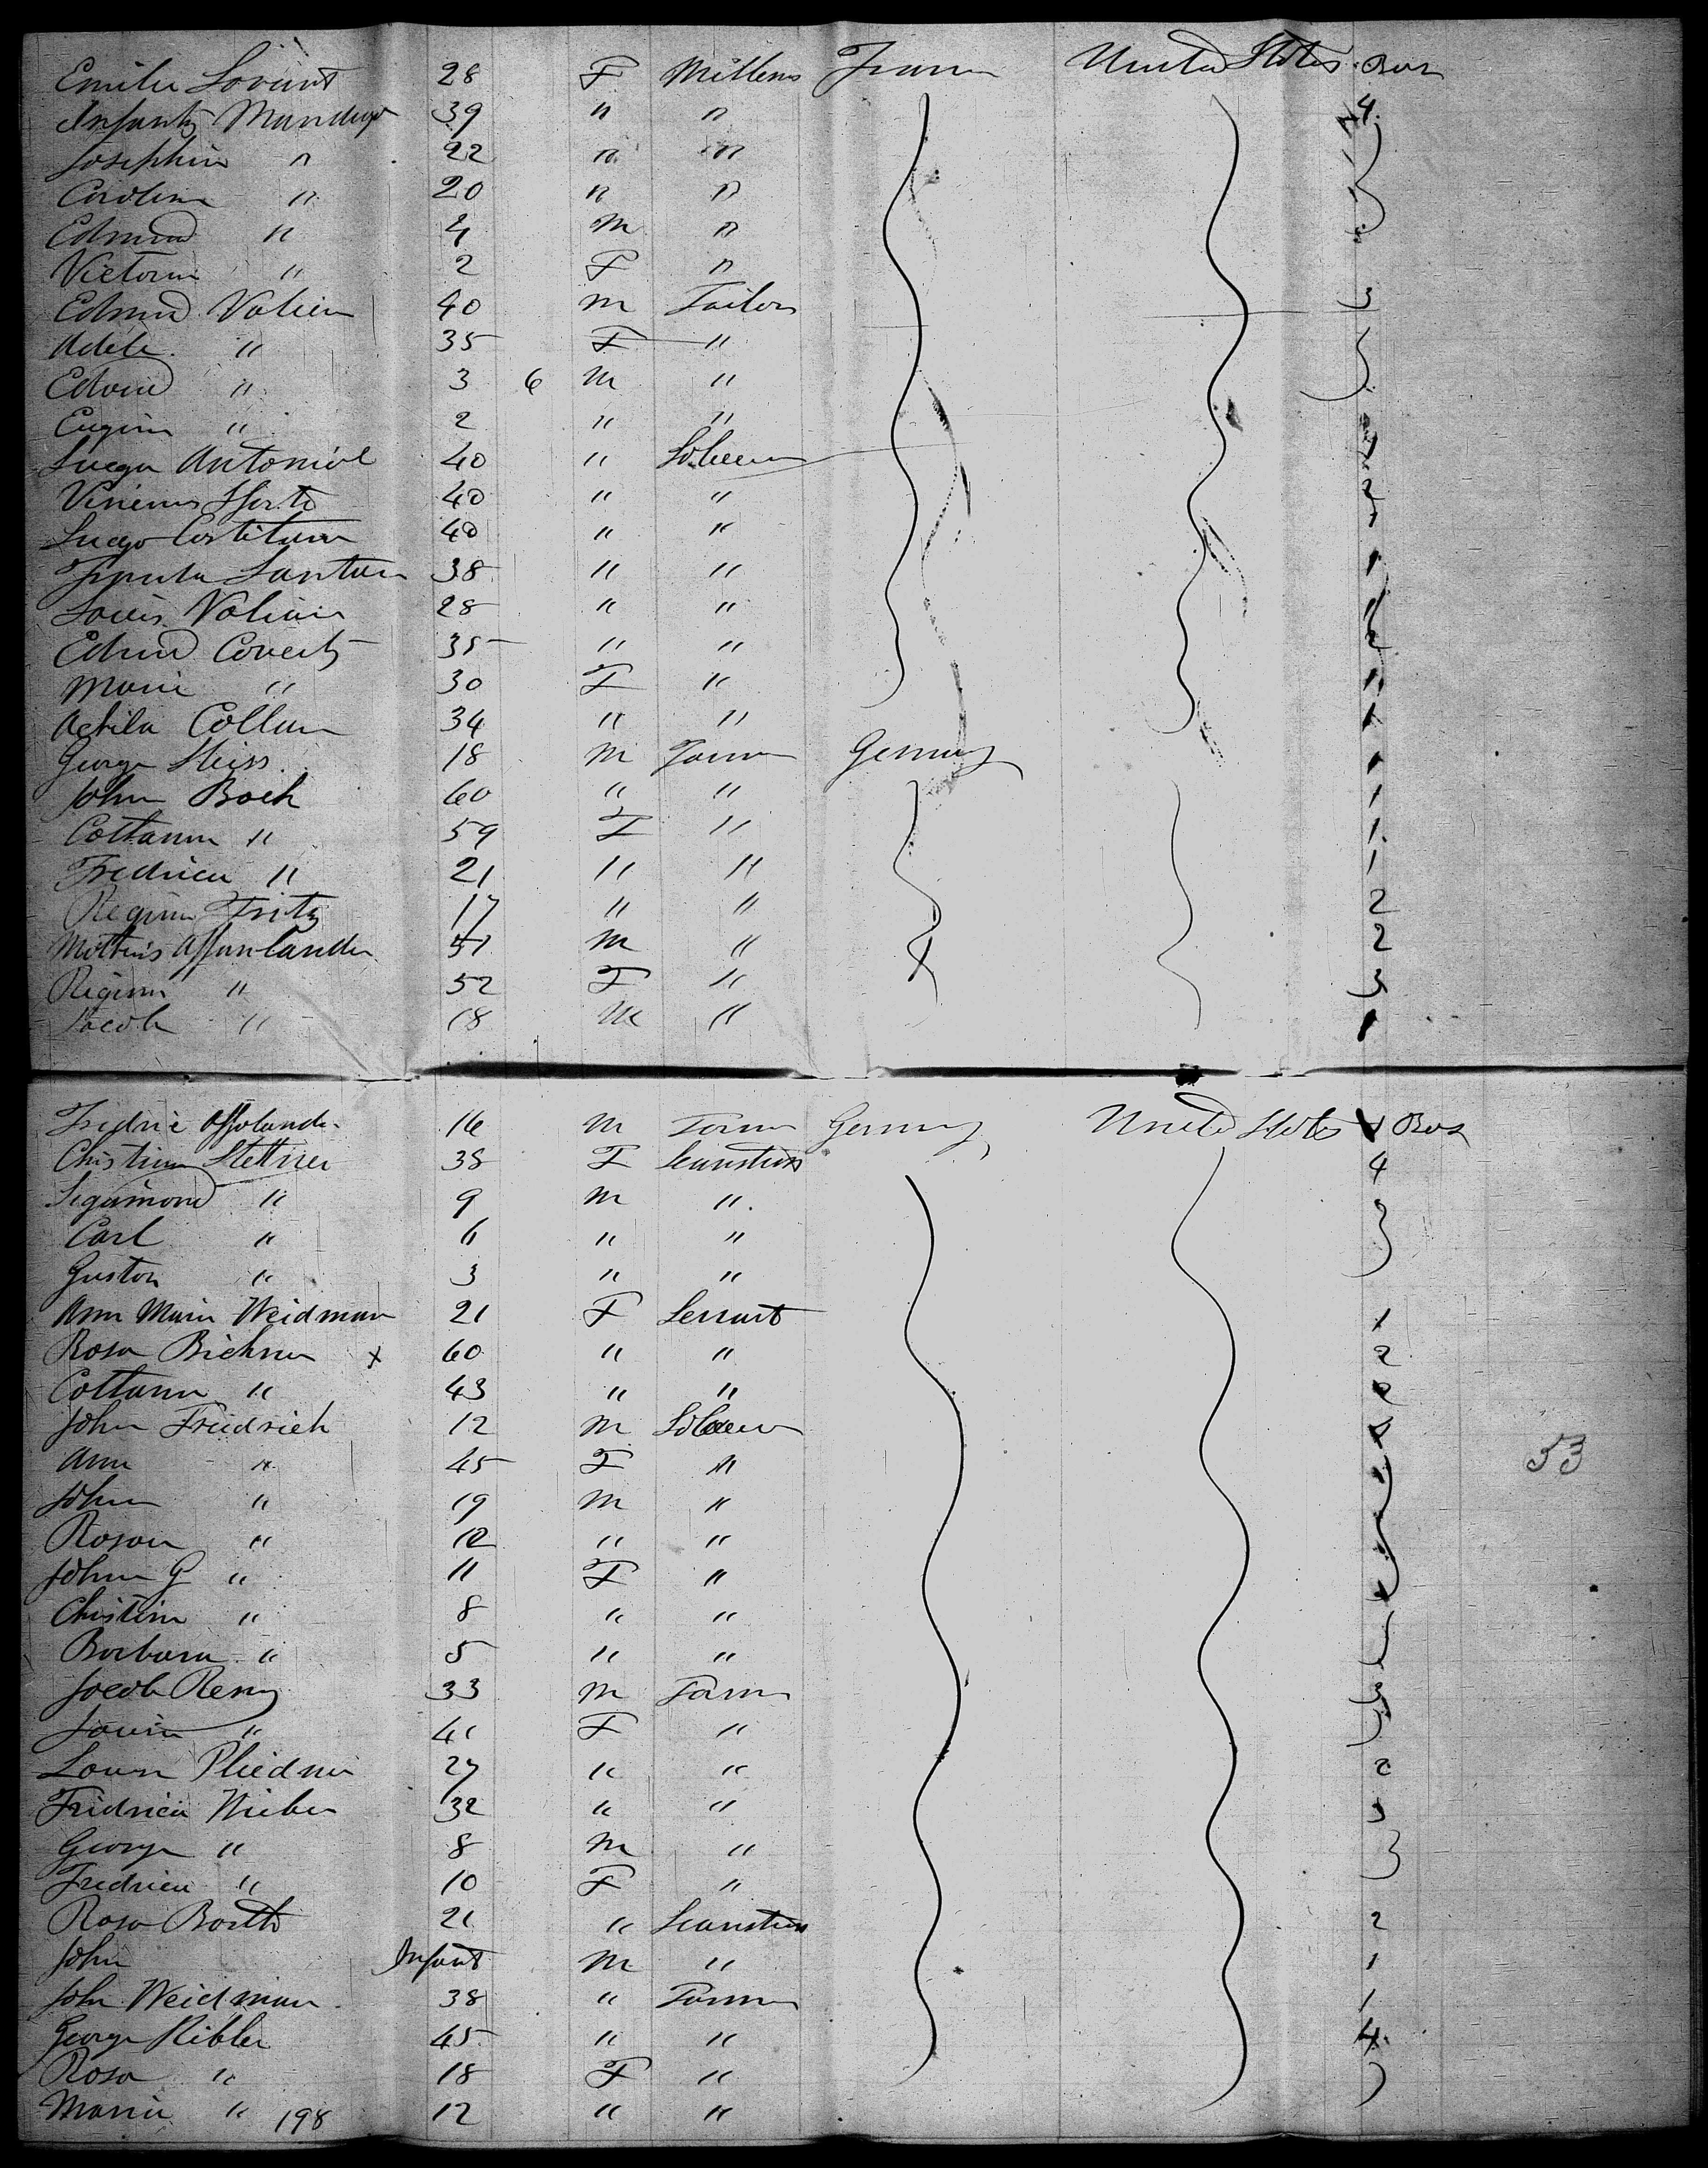 Emilie Lovint 28 F Millens France United States Box
Infantz Mandeys 39 " " 4
Josephin " 22 " "
Carolina " 20 " "
Edmund " 4 M "
Victorin " 2 F "
Edmd Valien 40 M Tailor 3
Adele " 35 F "
Edwid " 3 6 M "
Eugin " 2 " "
Luega Antoniol 40 " Laborer
40 " " 2
Luego 40 " "
Santan 38 " " 1
Louis Valien 28 " "
Edmd Coverts 35 " "
Marie " 30 F "
Achila Collan 34 " " 1
George Heiss 18 M Farmer Germany 1
John Boch 60 " " 1
Cottanna " 59 F " 1
Fredrica " 21 " " 1
Regina Fritz 17 " " 2
Mathis Affanlander 51 M " 2
Regina " 52 F " 3
Jacob " 18 M " 1
Fridric Affolander 16 M Farmer Germany United States 1 Box
Christina Stettner 38 F Seamstress 4
Sigismond " 9 M "
Carl " 6 " "
Gustav " 3 " "
Ann Maria Weidman 21 F Servant 1
Rosa Bichner x 60 " " 2
Cottanna " 43 " " 2
John Friedrich 12 M Laborer
Ann " 45 F "
John " 19 M "
Rosan " 12 " "
John G " 11 F "
Christina " 8 " "
Barbara " 5 " "
Jacob Remy 33 M Farmer 3
Louisa " 41 F "
Louisa Pliedner 27 " " 2
Fridrica Wieber 32 " " 3
George " 8 M "
Fredrica " 10 F "
Rosa Barth 21 " Seamstress 2
John Infant M " 1
John Weidman 38 " Farmer 1
George Kibler 45 " " 4
Rosa " 18 F "
Maria " 198 12 " "
53